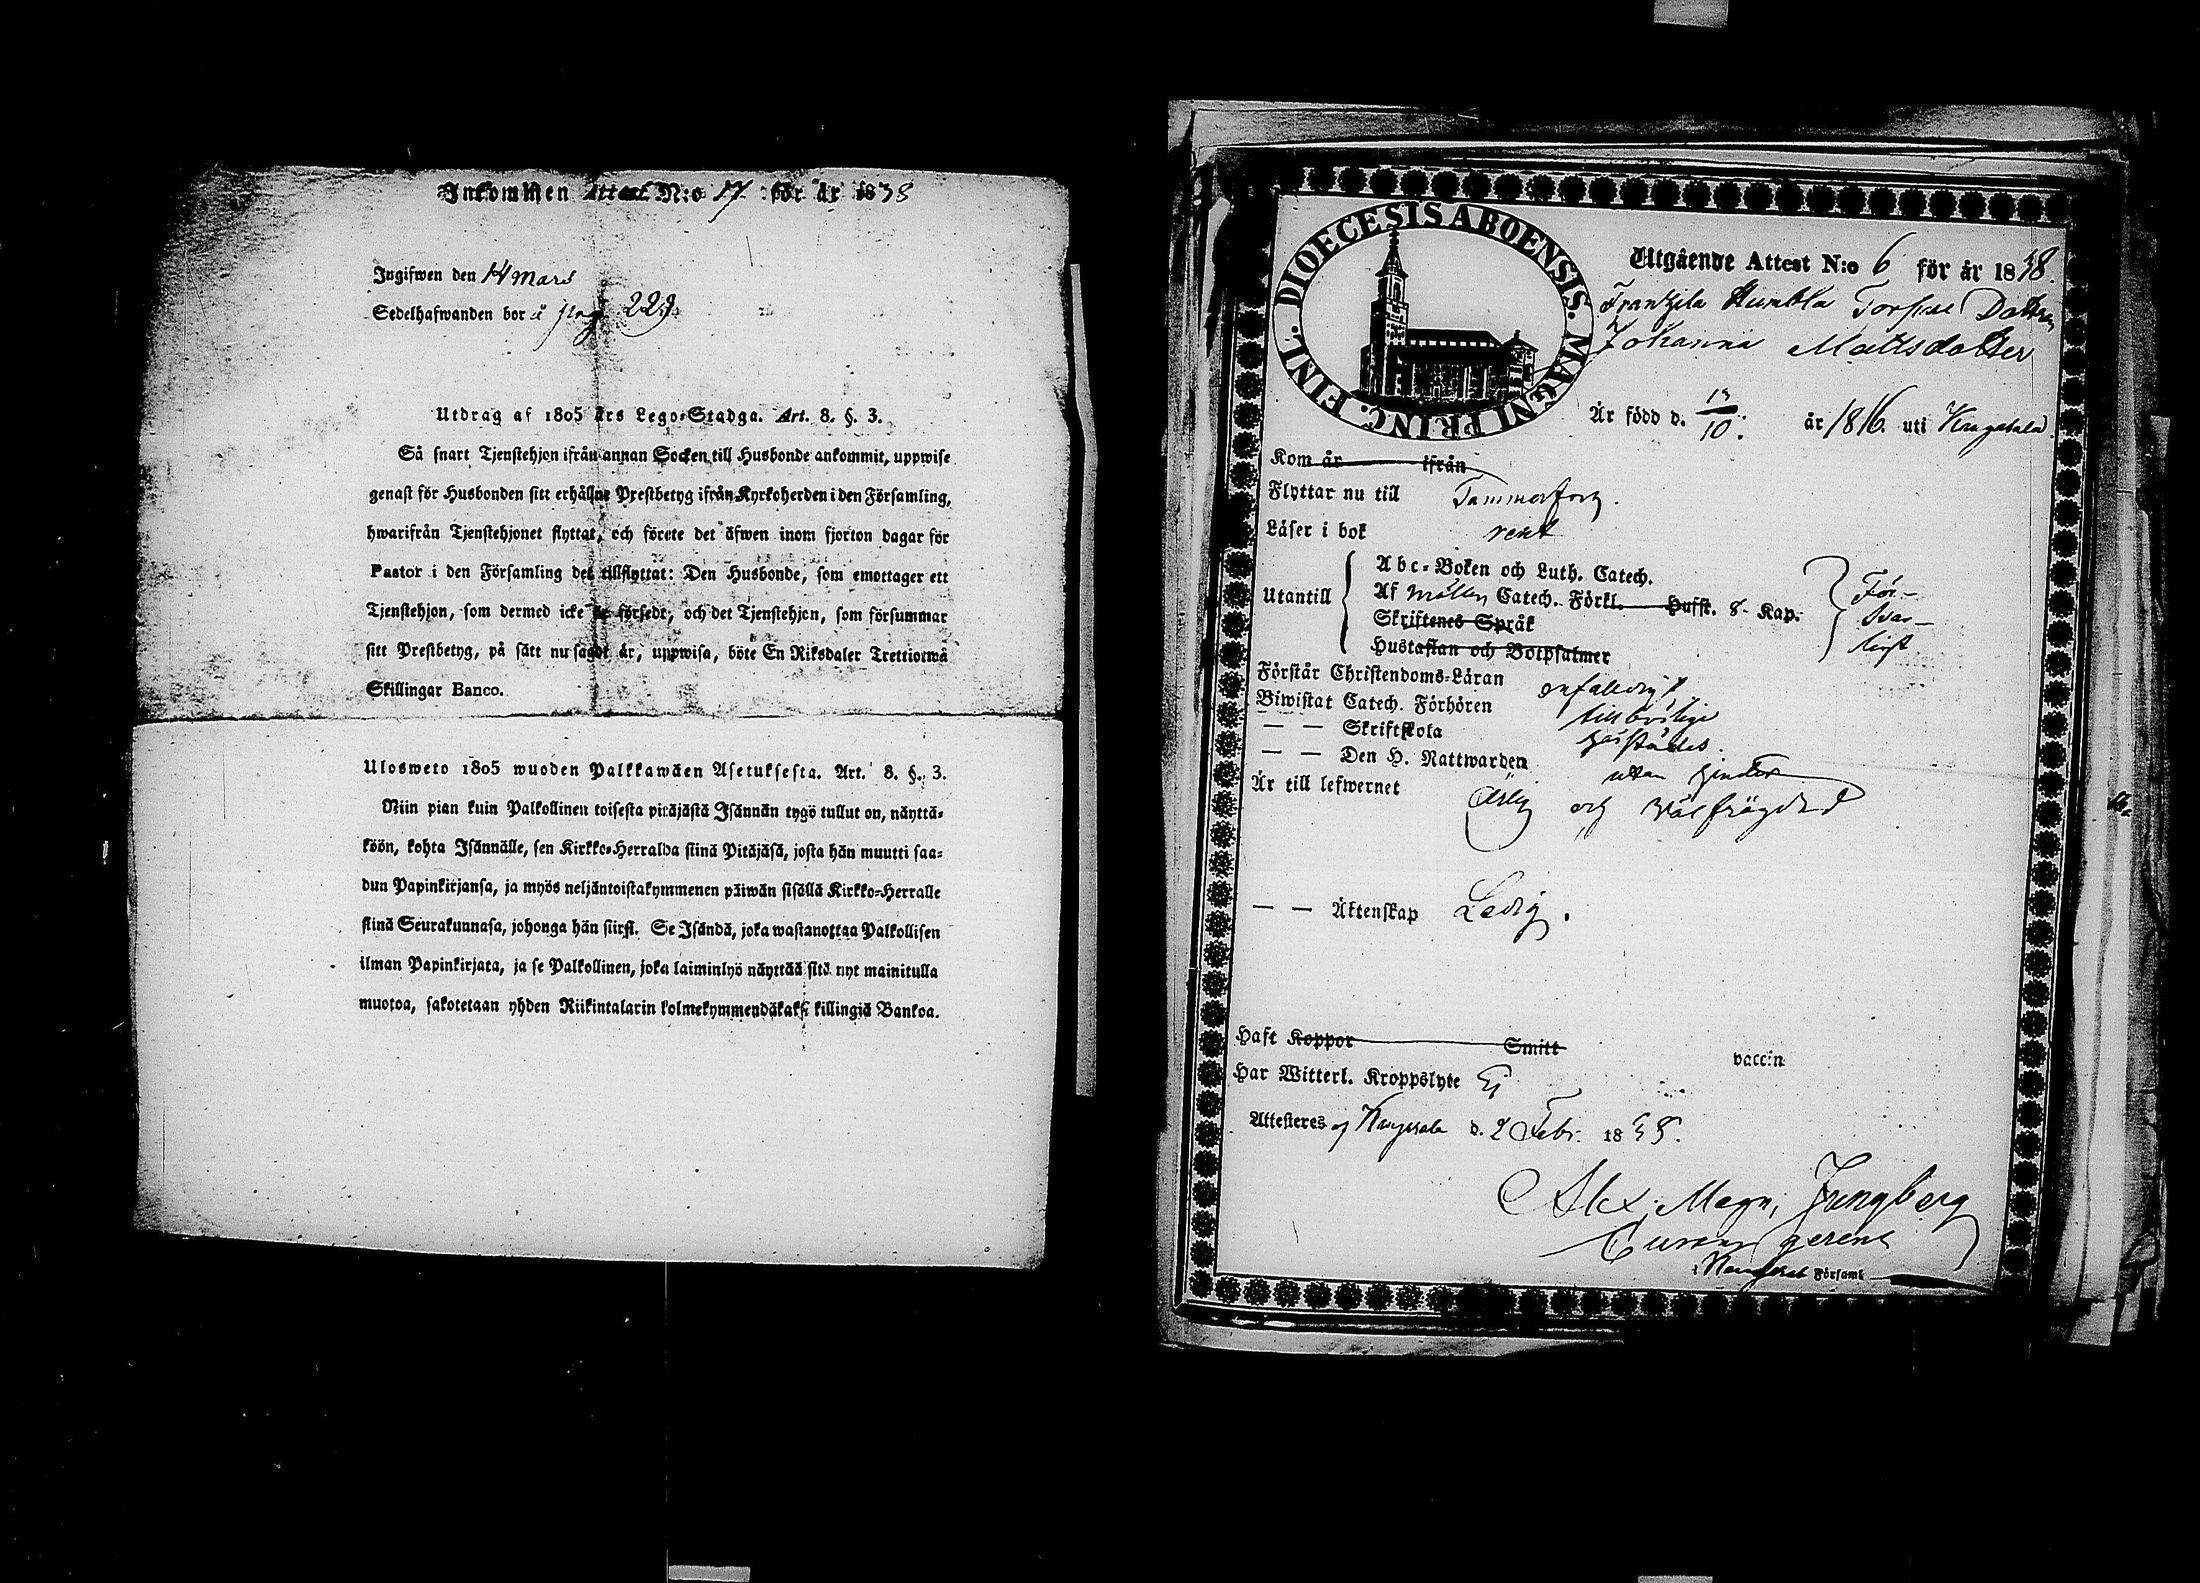 Inkommen Attest N:o 17 för år 1838
Ingifwen den 14 Mars
Sedelhafwanden bor å pag 229.
Utdrag af 1805 års Lego-Stadga. Art. 8. §. 3.
Så snart Tjenstehjon ifrån annan Socken till Husbonde ankommit, uppwise
genast för Husbonden sitt erhållne Prestbetyg ifrån Kyrkoherden i den Församling,
hwarifrån Tjenstehjonet flyttat, och förete det äfwen inom fjorton dagar för
Pastor i den Församling det tillflyttat: Den Husbonde, som emottager ett
Tjenstehjon, som dermed icke är försedt, och det Tjenstehjon, som försummar
sitt Prestbetyg, på sätt nu sagdt är, uppwisa, böte En Riksdaler Trettiotwå
Skillingar Banco.
Ulosweto 1805 wuoden Palkkawäen Asetuksesta. Art. 8. §. 3.
Niin pian kuin Palkollinen toisesta pitäjästä Isännän tygö tullut on, näyttä-
köön, kohta Isännälle, sen Kirkko-Herralda siinä Pitäjäsä, josta hän muutti saa-
dun Papinkirjansa, ja myös neljäntoistakymmenen päiwän sisällä Kirkko-Herralle
siinä Seurakunnasa, johonga hän siirsi. Se Isändä, joka wastanottaa Palkollisen
ilman Papinkirjata, ja se Palkollinen, joka laiminlyö näyttää sitä nyt mainitulla
muotoa, sakotetaan yhden Riikintalarin kolmekymmendäkaksi killingiä Bankoa.
DIOECESIS ABOENSIS. MAGNI PRINC. FINL.
Utgående Attest N:o 6 för år 1838.
Frantzila Humbla Torpare Dottren
Johanna Mattsdotter
Är född d. 13/10. år 1816. uti Kangasala
Kom år ifrån
Flyttar nu till Tammerfors.
Läser i bok rent
Utantill
Abc-Boken och Luth. Catech.
Af Möllers Catech. Förkl. Husst. 8 Kap.
Skriftenes Språk
Hustaflan och Botpsalmer
För-
svar-
ligt
Förstår Christendoms-Läran enfaldigt
Biwistat Catech. Förhören tillbörlige
— — Skriftskola
— — Den H. Nattwarden utan hinder
Är till lefwernet Ärlig och Välfrägdad
— — Äktenskap Ledig.
Haft Koppor Smitt vaccin
Har Witterl. Kroppslyte Ej
Attesteras af Kangasala d. 2 Febr. 1838.
Alex. Magn. Ljungberg
Curam gerens
i Kangasala Församl